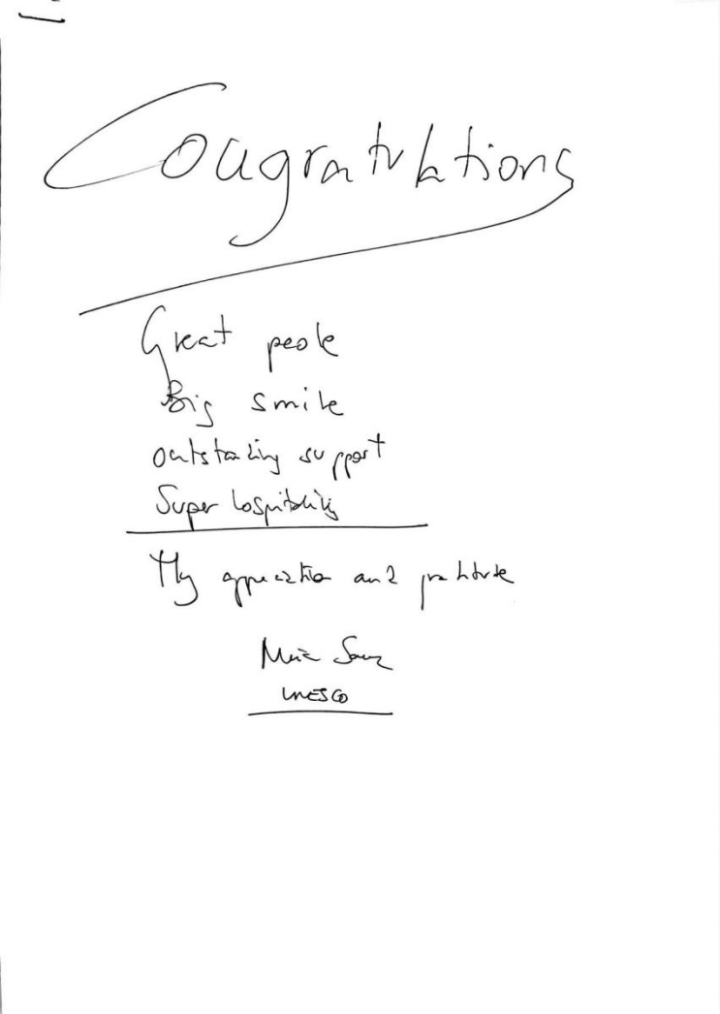 Congratulations
Great people
Big smile
outstanding support
Super hospitality
My appreciation and gratitude
UNESCO